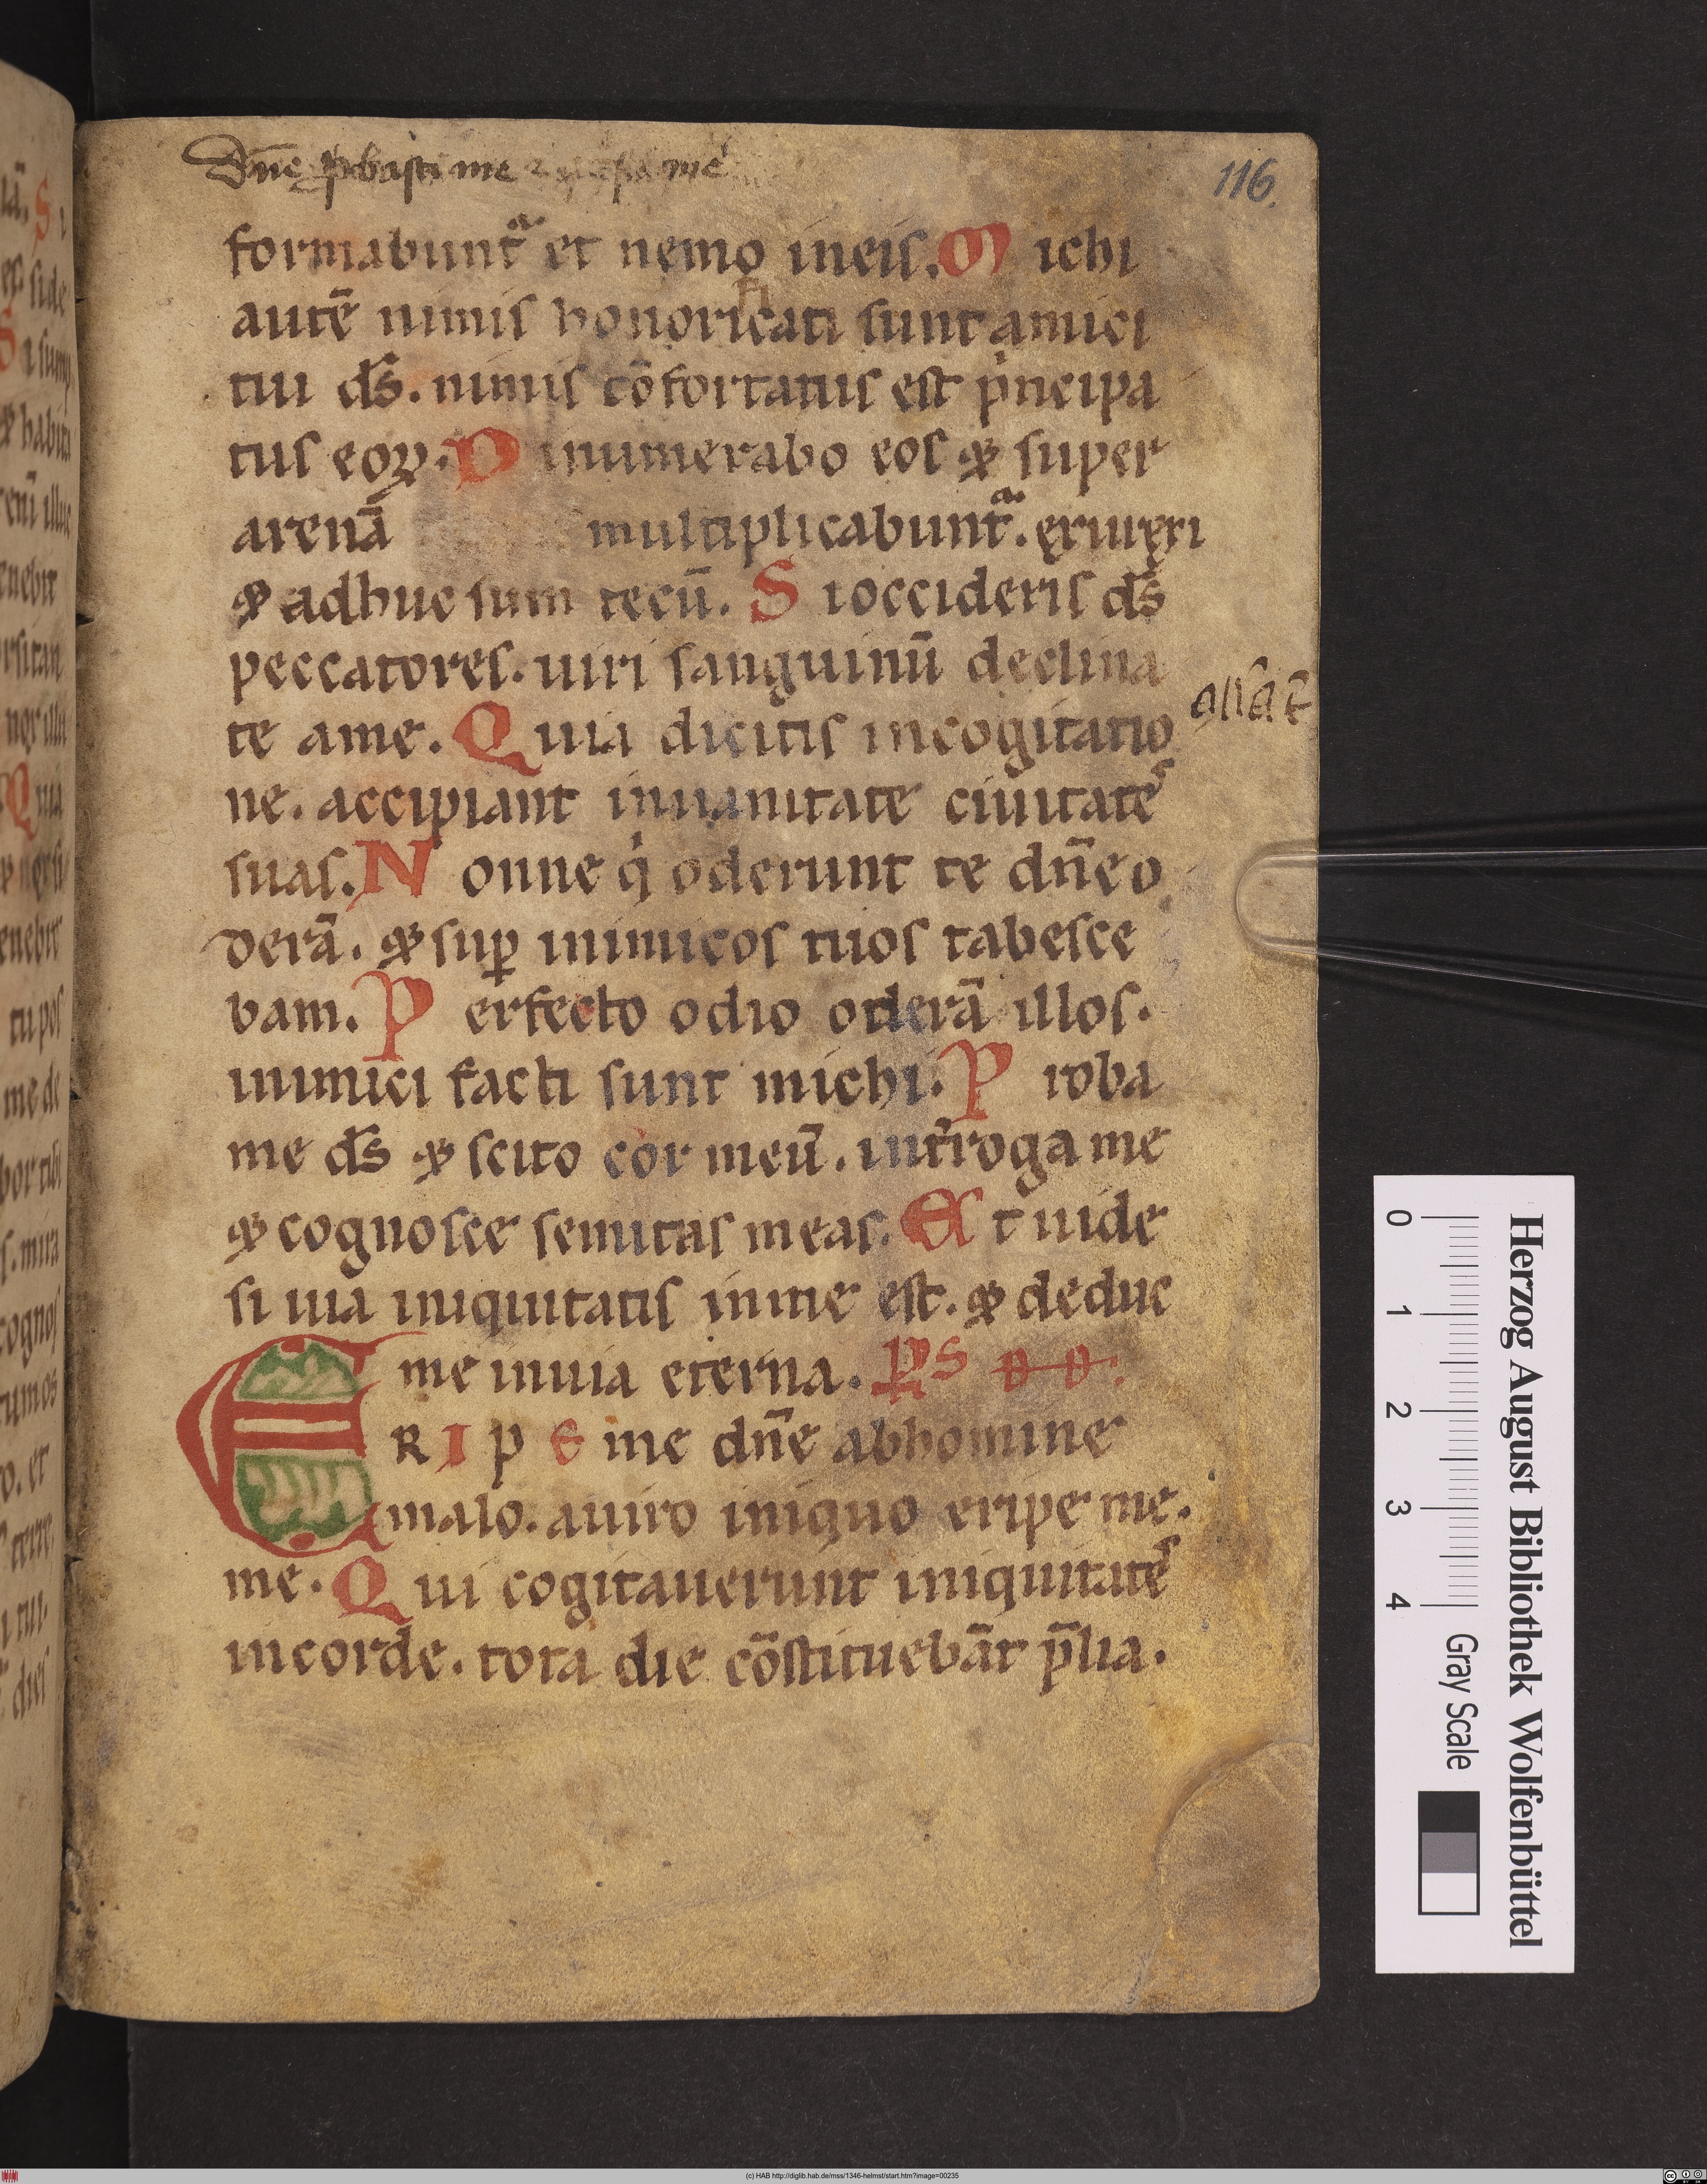 Dn̄e ꝓbasti me me
116.
formabuntᵃ et nemo ineis. M ichi
autē nimis honorificati sunt amici
tui ds̄. nimis cōfortatus est pͥncipa
tus eoꝝ. D inumerabo eos & super
arenā multiplicabuntᵃ. exurrexi
& adhuc sum tecū. S i occideris ds̄
peccatores. uiri sanguinū declina
te ame. Q uia dicitis incogitatio
ne. accipiant inuanitate ciuitateˢ
suas. N onne qͥ oderunt te dn̄e o
derā. & suꝑ inimicos tuos tabesce
bam. P erfecto odio oderā illos.
inimici facti sunt michi. P roba
me ds̄ & scito cor meū. int̄roga me
& cognosce semitas meas. E t uide
si uia iniquitatis inme est. & deduc
me inuia eterna. PS DD.
E R I P E me dn̄e abhomine
malo. auiro iniquo eripe me.
me. Q ui cogitauerunt iniquitateˢ
incorde. tota die cōstituebāt p̄lia.
Herzog August Bibliothek Wolfenbüttel
0 1 2 3 4 Gray Scale
(c) HAB http://diglib.hab.de/mss/1346-helmst/start.htm?image=00235